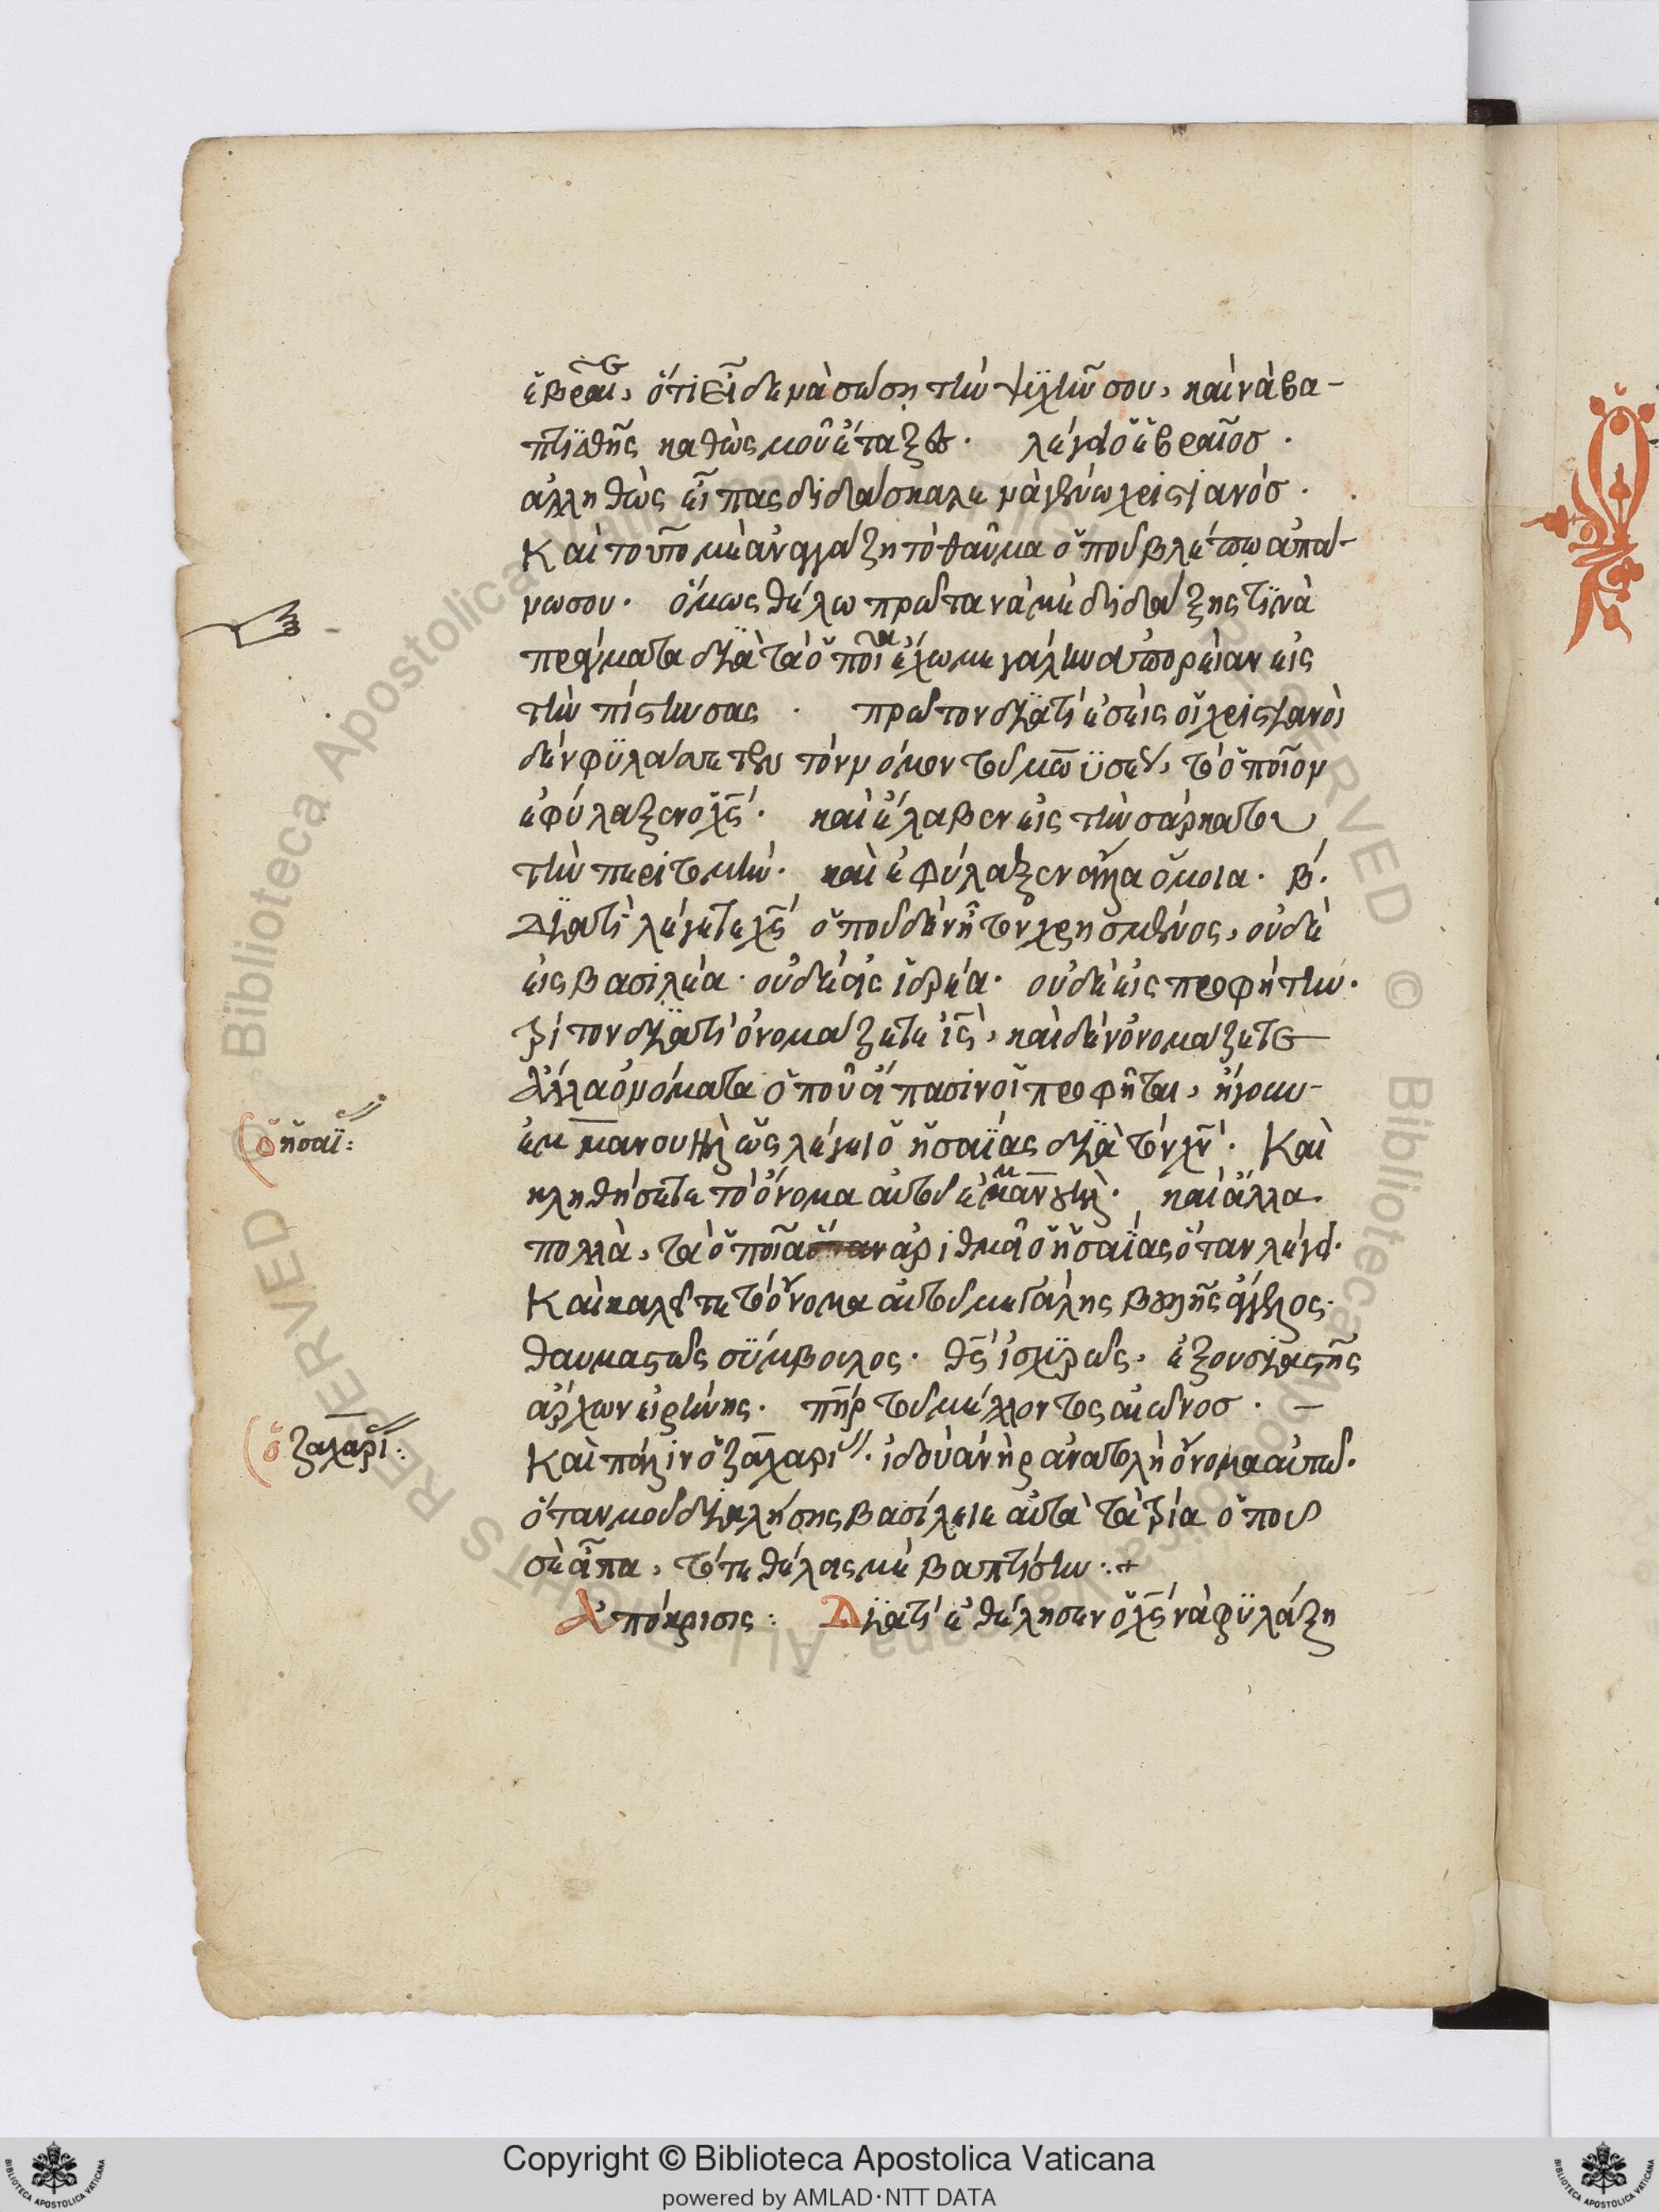 ἑβραῖε, ὅτι εἶδε νὰ σώση τὴν ψϋχὴν σου, καὶ νὰ βα-
πτϊσθῆς καθὼς μοῦ ἔταξες. λέγει ὁ ἑβραῖοσ.
ἀλληθῶς εἶπας διδάσκαλε νὰ γένω χριστιανόσ.
Καὶ τοῦτο μὲ ἀναγκάζη τὸ θαῦμα ὁποῦ βλέπω ἀπά-
νωσου. ὅμως θέλω πρῶτα νὰ μὲ διδάξης τϊνὰ
πράγματα δϊὰ τὰ ὁποῖα ἔχω μεγάλην ἀπορείαν εἰς
τὴν πίστην σας. πρῶτον δϊατί ἐσεῖς οἱ χριστϊανοὶ
δὲν φϋλάττετεν τὸν νόμον τοῦ μωϋσέως, τὸ ὁποῖον
ἐφύλαξεν ὁ χς. καὶ ἔλαβεν εἰς τὴν σάρκα του
τὴν περιτομήν. καὶ ἐφύλαξεν ἄλλα ὅμοια. β.
Δϊατὶ λέγετε χς ὁποῦ δὲν ἦτον χρησμένος, οὐδὲ
εἰς βασιλέα. οὐδὲ εἰς ἱερέα. οὐδὲ εἰς προφήτην.
τρίτον δϊατὶ ὀνομάζετε ις, καὶ δὲν ὀνομάζετε
ἄλλα ὀνόματα ὁποῦ εἴπασιν οἱ προφῆται, ἤγουν
ἐμμανουὴλ ὡς λέγει ὁ ἡσαΐας δϊὰ τὸν χν. Καὶ
κληθήσεται τὸ ὄνομα αὐτοῦ ἐμμανουήλ. καὶ ἄλλα
πολλὰ, τὰ ὁποῖα ἀριθμᾶ ὁ ἡσαΐας ὅταν λέγει.
Καὶ καλεῖται τὸ ὄνομα αὐτοῦ μεγάλης βουλῆς ἄγγελος.
θαυμαστὸς σύμβουλος. θς ἰσχϋρὸς. ἐξουσϊαστῆς
ἄρχων εἰρήνης. πηρ τοῦ μέλλοντος αἰῶνοσ. –
Καὶ πάλιν ὁ ζαχαρι. ἰδοὺ ἀνὴρ ἀνατολὴ ὄνομα αὐτοῦ.
ὅταν μοῦ δϊαλήσης βασίλειε αὐτὰ τὰ τρία ὁποῦ
σὲ εἶπα, τότε θέλεις μὲ βαπτίσην :+
Ἀπόκρισις: Δϊατὶ ἐθέλησεν ὁ χς νὰ φϋλάξη
ὁ ἡσαϊ:
ὁ ζαχαρι:
Copyright © Biblioteca Apostolica Vaticana
powered by AMLAD·NTT DATA